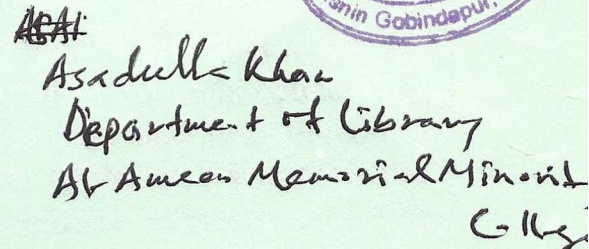 snin Gobindapur,
Asadulla Khan
Department of Library
Al-Ameen Memorial Minorit
College